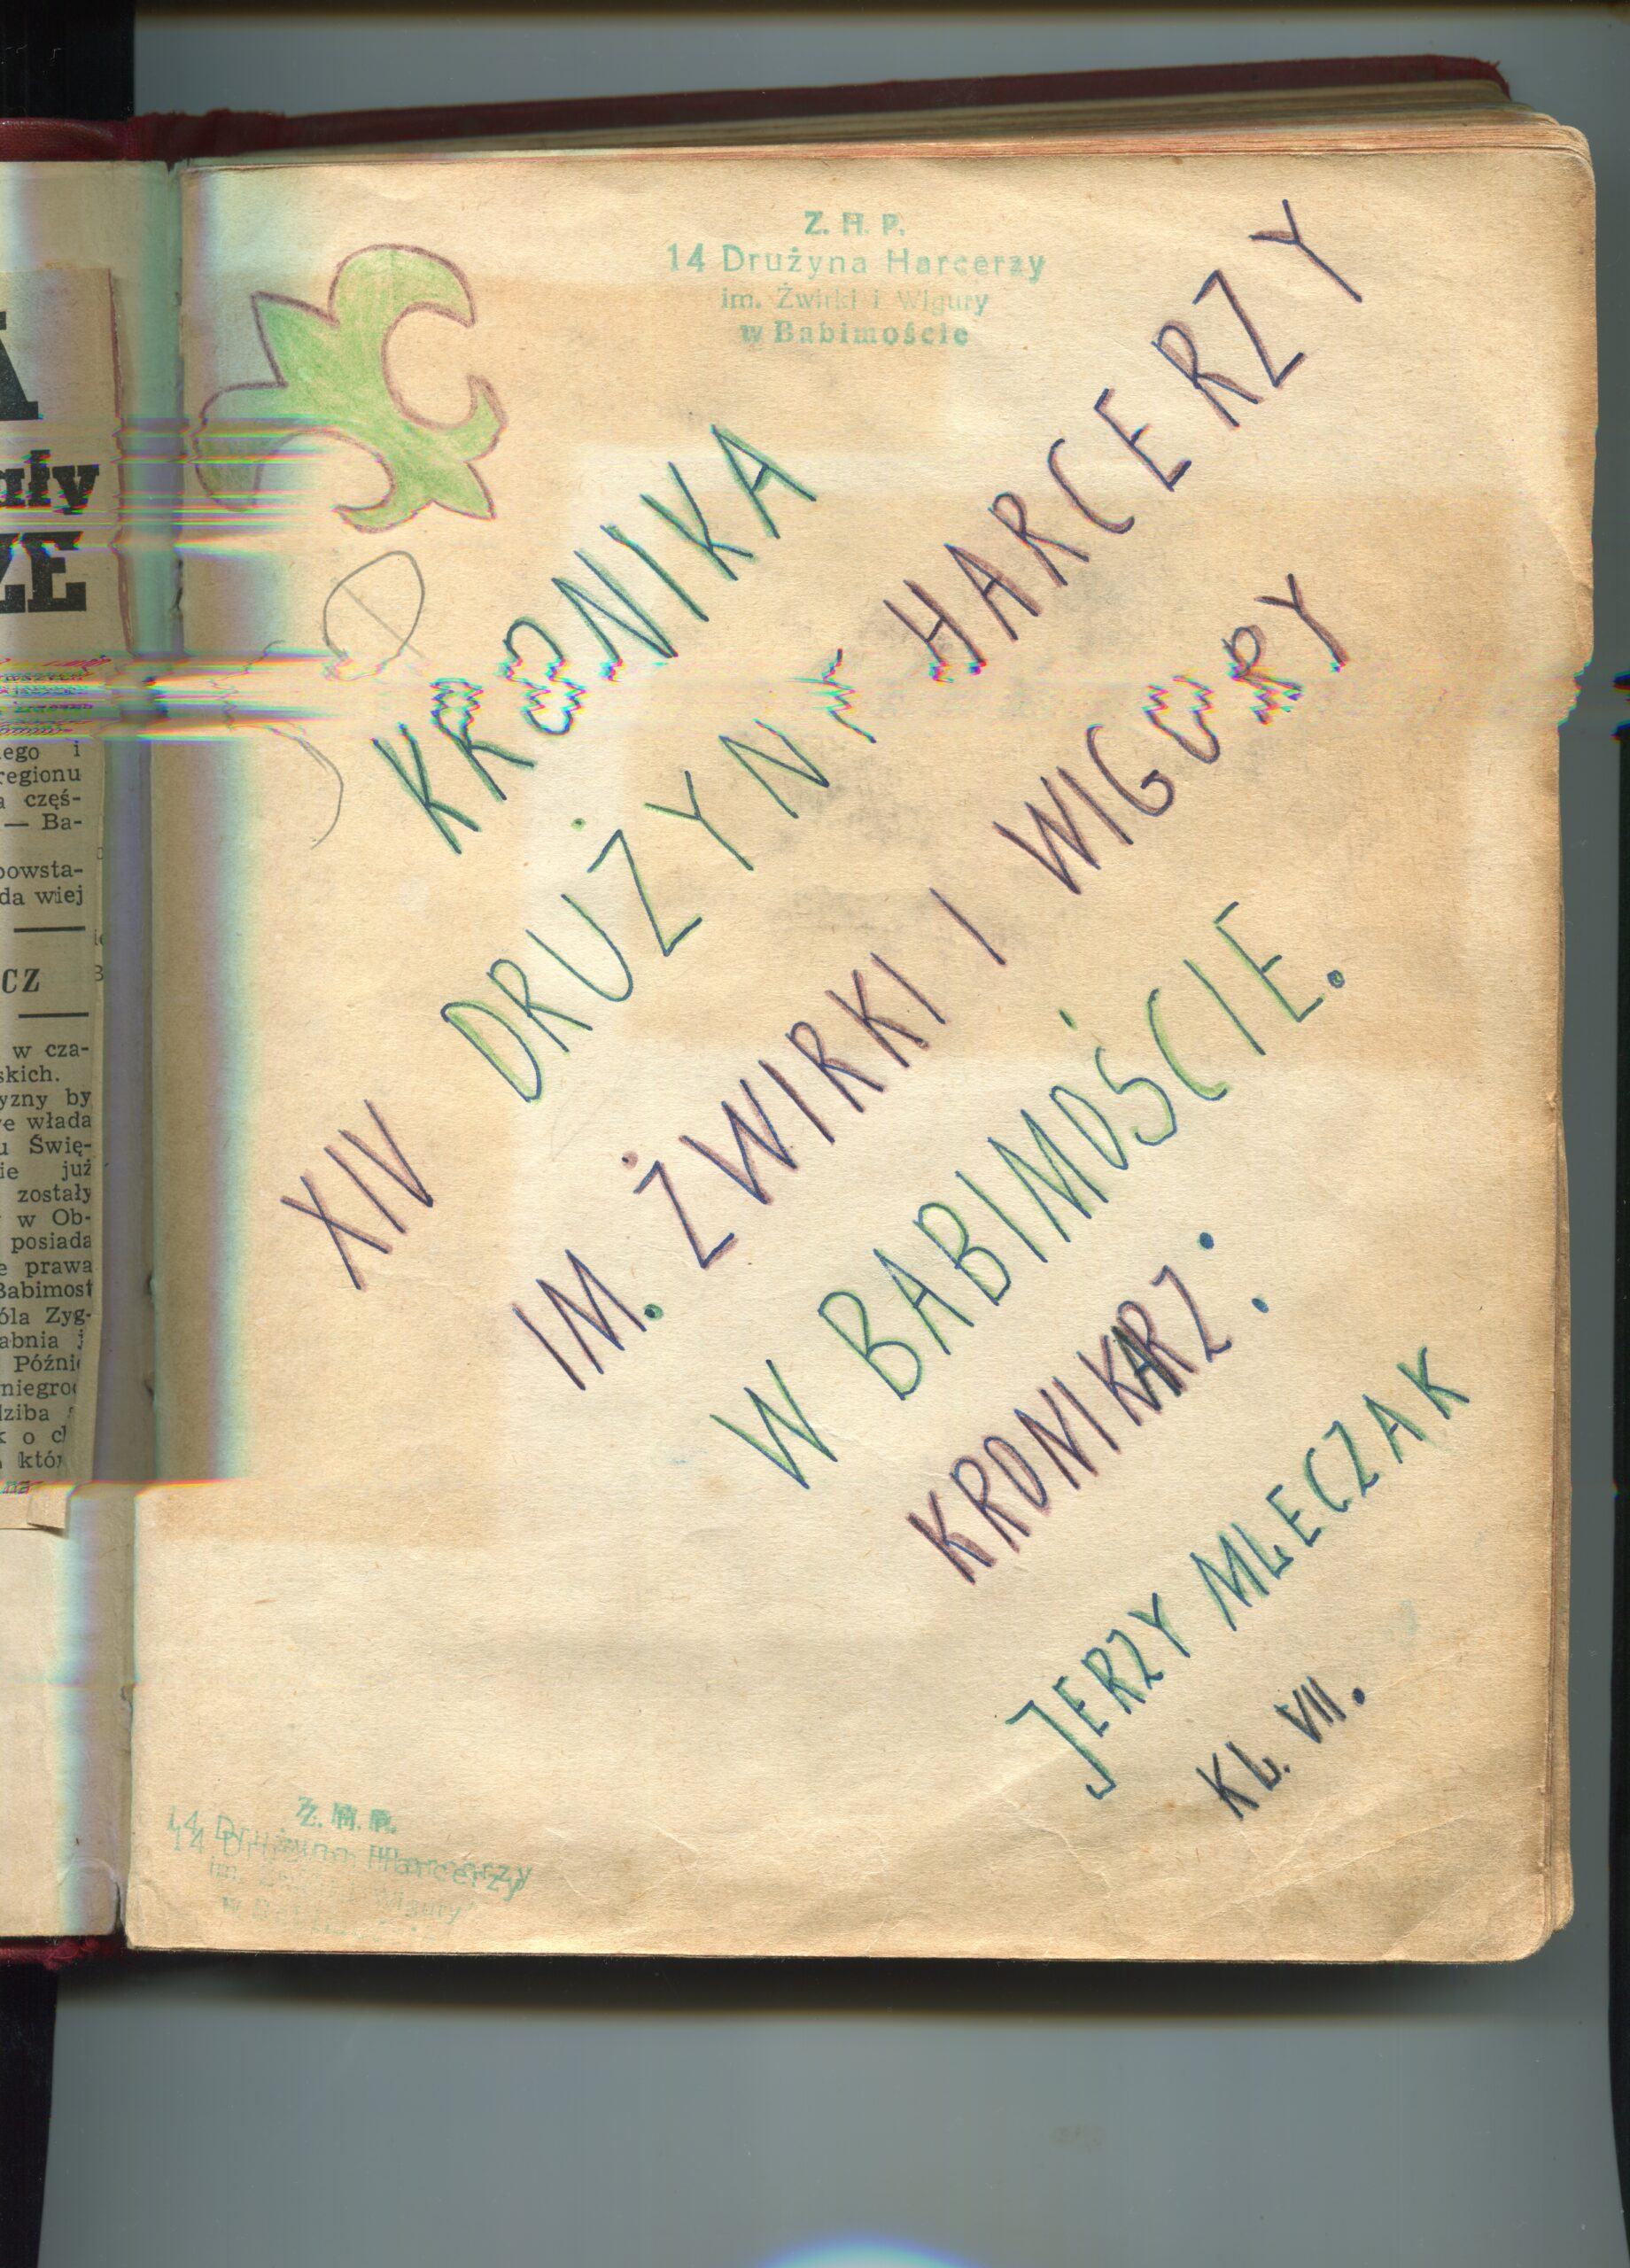 Z. H. P.
14 Drużyna Harcerzy
im. Żwirki i Wigury
w Babimoście
KRONIKA
XIV DRUŻYNY HARCERZY
IM. ŻWIRKI I WIGURY
W BABIMOŚCIE.
KRONIKARZ:
JERZY MLECZAK
KL. VII.
Z. H. P.
14 Drużyna Harcerzy
im. Wigury
w
A
ały
ZE
ego i
regionu
a częś-
— Ba-
powsta-
da wiej
CZ
w cza-
skich.
yzny by
e włada
u Świę-
ie już
zostały
w Ob-
posiada
e prawa
Babimost
óla Zyg-
abnia j
Późni
niegro
dziba
k o c
któr
na